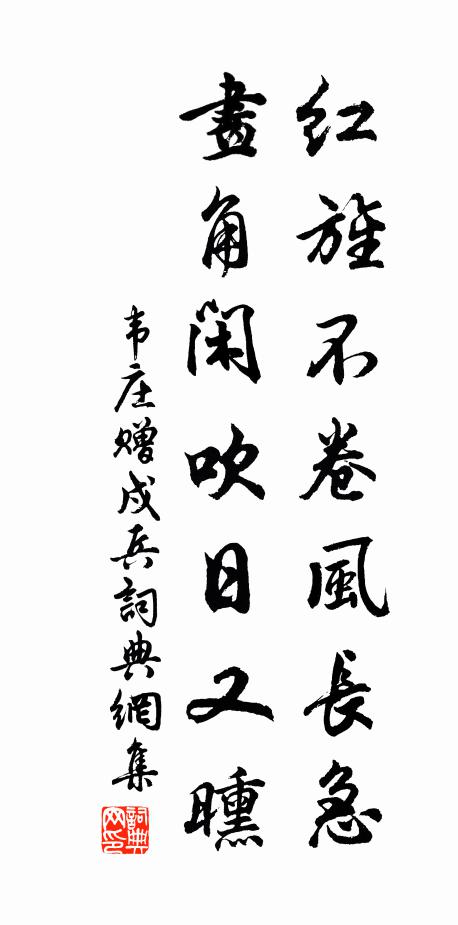 红旌不卷風長急
畫角閑吹日又曛
韦庄赠戍兵詞典網集
詞典网印